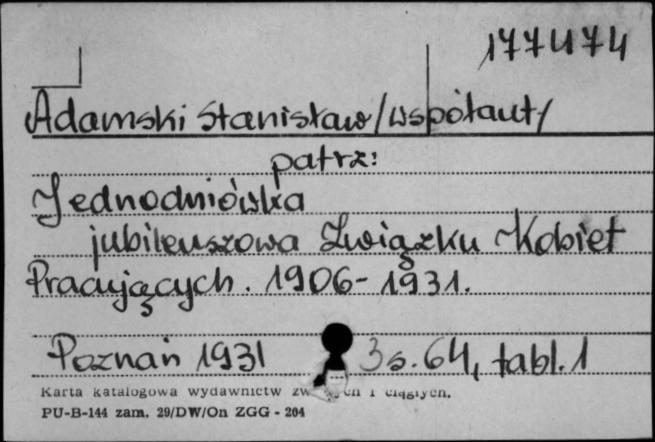 177474
Adamski Stanisław /współaut/
patrz:
Jednodniówka
jubileuszowa Związku Kobiet
Pracujących. 1906-1931.
Poznań 1931 s. 64, tabl. 1
Karta katalogowa wydawnictw i ciągłych.
PU-B-144 zam. 29/DW/On ZGG - 204